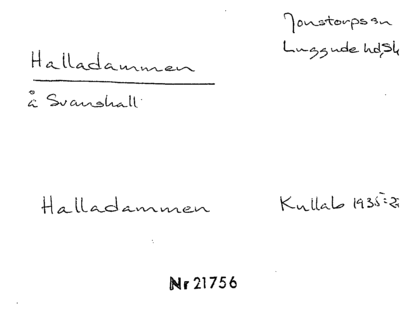 Jonstorps sn
Luggude hd, Sk
Halladammen
å Svanshall
Halladammen
Kullab 1935:
Nr 21756